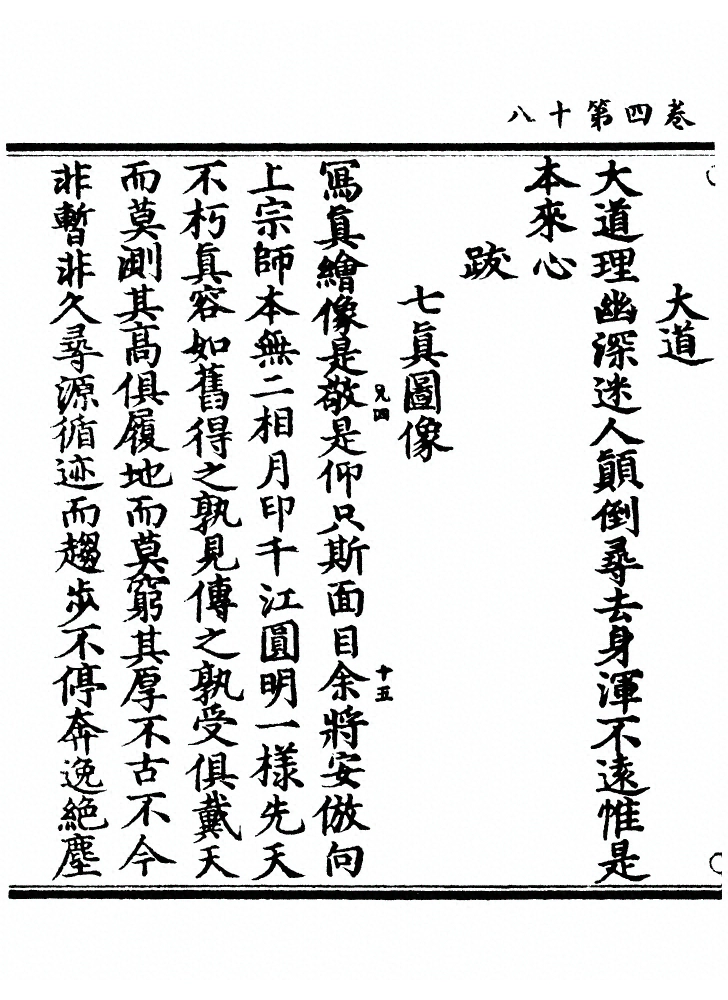 八十第四卷
大道
大道理幽深迷人顚倒尋去身渾不遠惟是
本來心
跋
七眞圖像
兄四
十五
冩眞繪像是敬是仰只斯面目余將安倣向
上宗師本無二相月印千江圓明一樣先天
不朽眞容如舊得之孰見傳之孰受俱戴天
而莫測其高俱履地而莫窮其厚不古不今
非暫非久尋源循迹而趨步不停奔逸絶塵